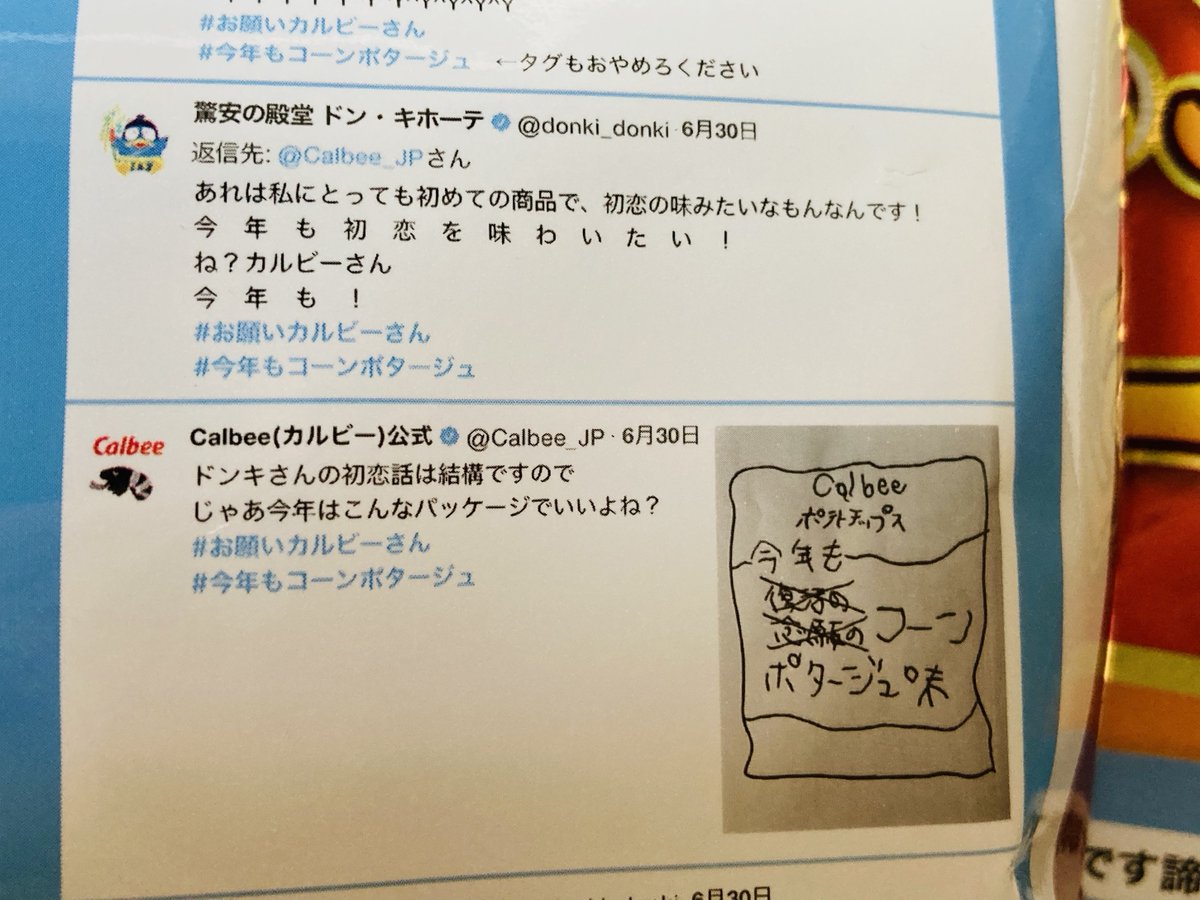 #お願いカルビーさん
#今年もコーンポタージュ ←タグもおやめろください
驚安の殿堂 ドン・キホーテ @donki_donki · 6月30日
返信先: @Calbee_JPさん
あれは私にとっても初めての商品で、初恋の味みたいなもんなんです！
今 年 も 初 恋 を 味 わ い た い ！
ね？カルビーさん
今 年 も ！
#お願いカルビーさん
#今年もコーンポタージュ
Calbee
Calbee(カルビー)公式 @Calbee_JP · 6月30日
ドンキさんの初恋話は結構ですので
じゃあ今年はこんなパッケージでいいよね？
#お願いカルビーさん
#今年もコーンポタージュ
Calbee
ポテトチップス
今年も
復活の
念願の コーン
ポタージュ味
6月30日
です諦